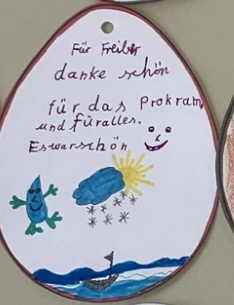 Für Freiber
danke schön
für das Prokram
und für alles.
Es war schön